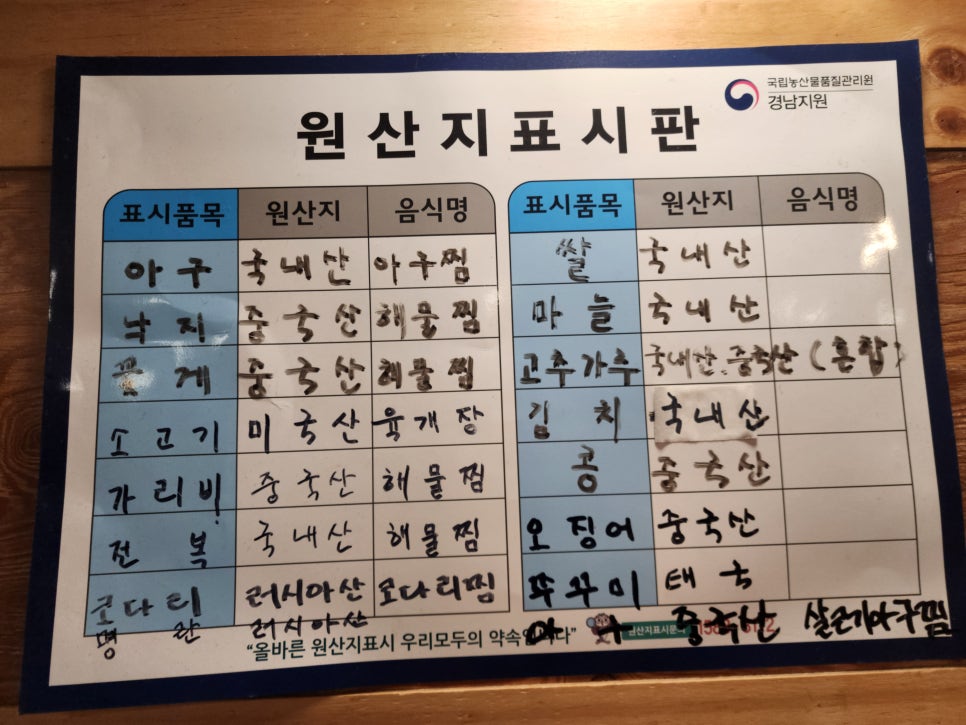 국립농산물품질관리원
경남지원
원산지표시판
표시품목 원산지 음식명
아구 국내산 아구찜
낙지 중국산 해물찜
꽃게 중국산 해물찜
소고기 미국산 육개장
가리비 중국산 해물찜
전복 국내산 해물찜
코다리 러시아산 코다리찜
명란 러시아산
표시품목 원산지 음식명
쌀 국내산
마늘 국내산
고추가루 국내산.중국산(혼합)
김치 국내산
콩 중국산
오징어 중국산
쭈꾸미 태국
아구 중국산 살코기아구찜
"올바른 원산지표시 우리모두의 약속입니다"
원산지표시문의